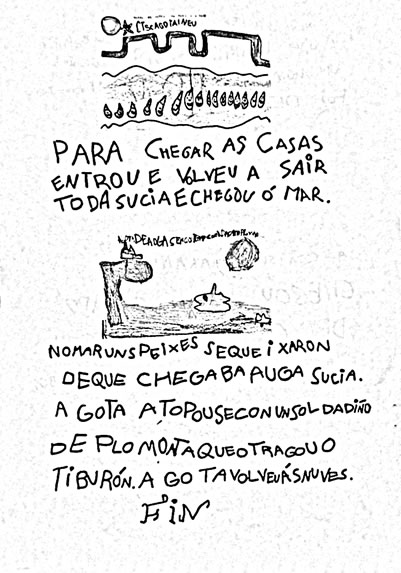 PARA CHEGAR AS CASAS
ENTROU E VOLVEU A SAIR
TODA SUCIA E CHEGOU Ó MAR.
NO MAR UNS PEIXES SE QUEIXARON
DE QUE CHEGABA AUGA SUCIA.
A GOTA ATOPOUSE CON UN SOLDADIÑO
DE PLOMO NTA QUE O TRAGOU O
TIBURÓN. A GOTA VOLVEU ÁS NUVES.
FIN